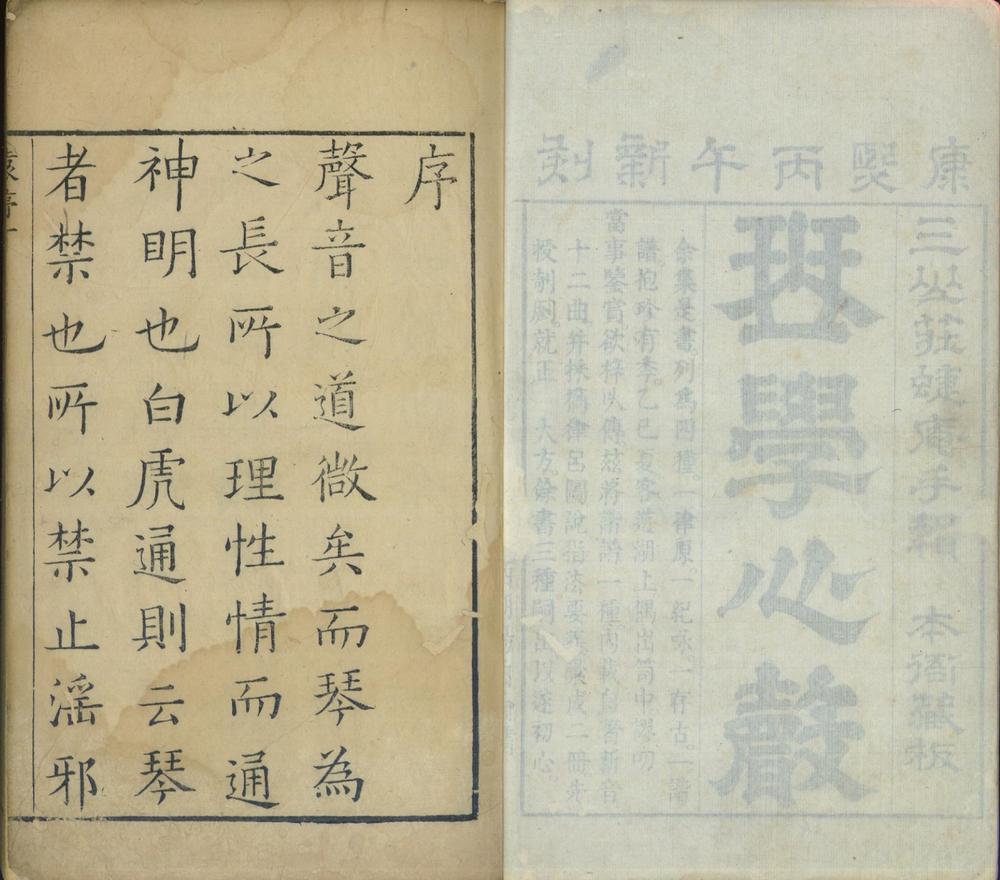 康熙丙午新刻
三山莊蝶庵手輯 本衙藏板
琴學心聲
余集是書。列為四種。一律原。一紀咏。一存古。一諧
譜。抱珍有季。乙巳夏客遊湖上偶出笥中謬叨
當事鑒賞欲梓以傳茲將諧譜一種內載自著新音
十二曲并採摘律呂圖說指法要義彙成二冊先
授剞劂。就正 大方。餘書三種嗣出以遂初心。
序
聲音之道微矣而琴為
之長所以理性情而通
神明也白虎通則云琴
者禁也所以禁止滛邪